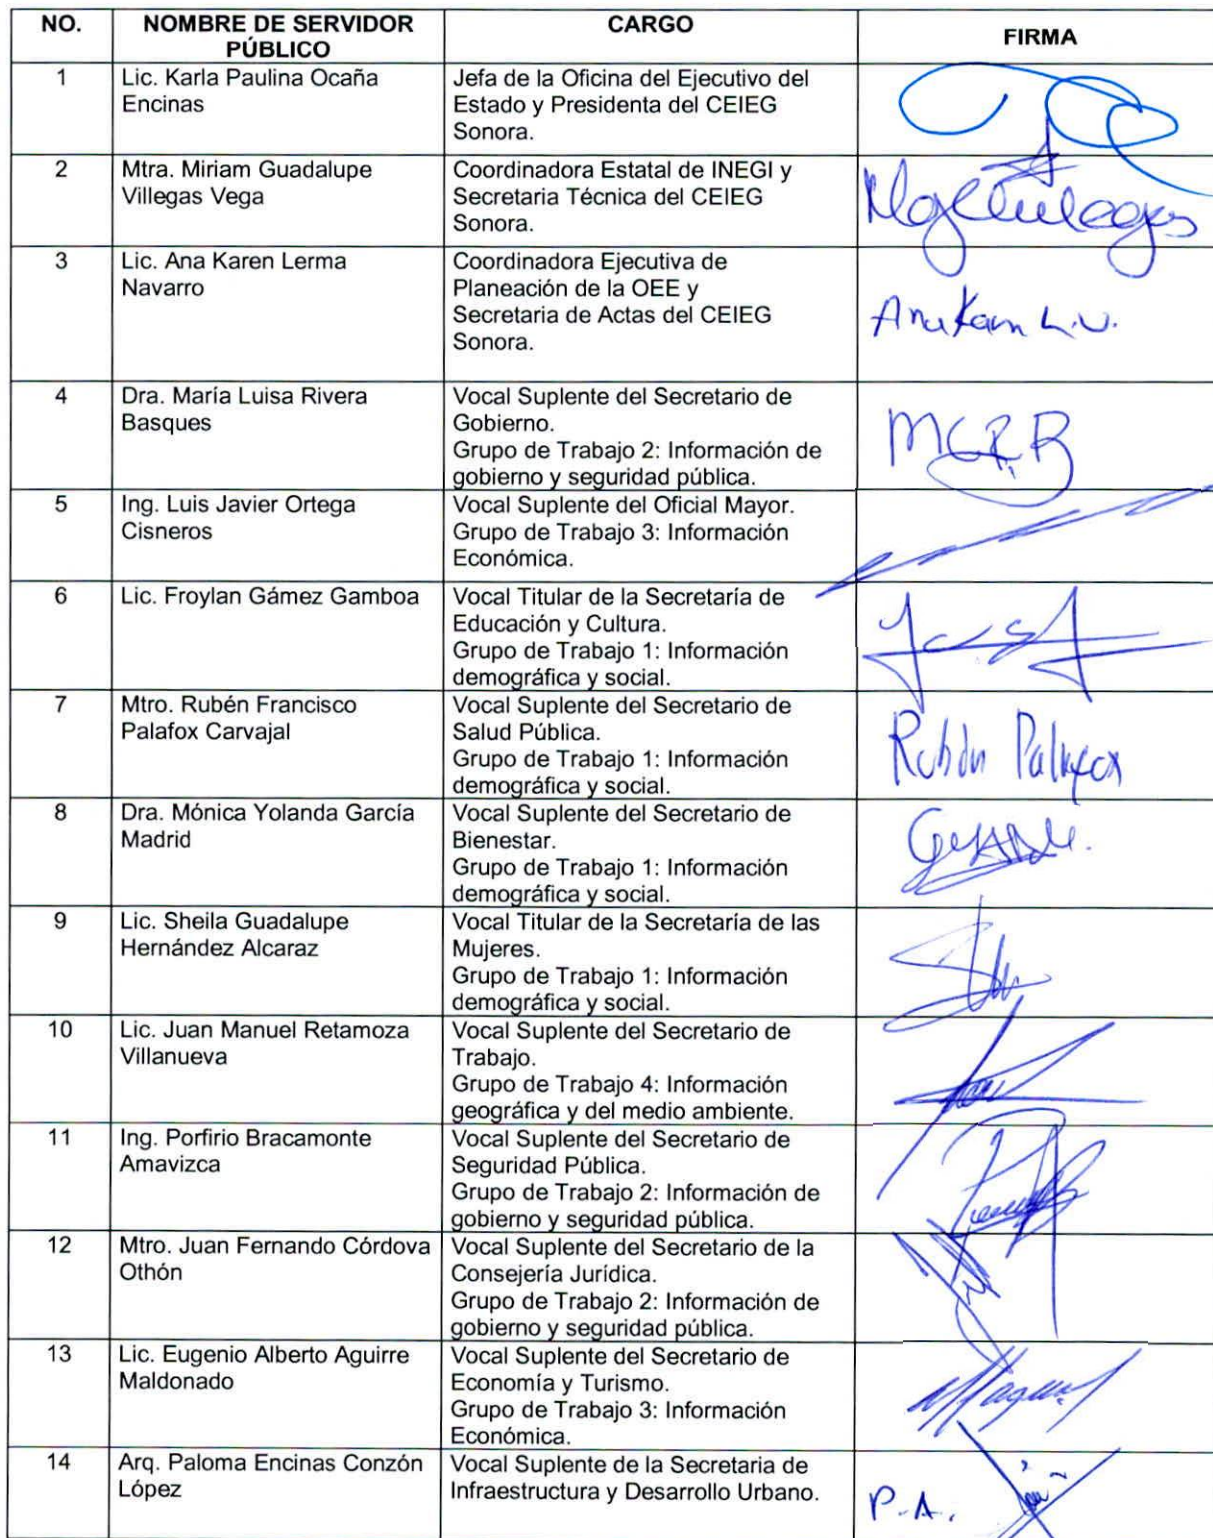 NO. NOMBRE DE SERVIDOR PÚBLICO CARGO FIRMA
1
Lic. Karla Paulina Ocaña
Encinas
Jefa de la Oficina del Ejecutivo del
Estado y Presidenta del CEIEG
Sonora.
2
Mtra. Miriam Guadalupe
Villegas Vega
Coordinadora Estatal de INEGI y
Secretaria Técnica del CEIEG
Sonora.
3
Lic. Ana Karen Lerma
Navarro
Coordinadora Ejecutiva de
Planeación de la OEE y
Secretaria de Actas del CEIEG
Sonora.
Ana Karen L.N.
4
Dra. María Luisa Rivera
Basques
Vocal Suplente del Secretario de
Gobierno.
Grupo de Trabajo 2: Información de
gobierno y seguridad pública.
5
Ing. Luis Javier Ortega
Cisneros
Vocal Suplente del Oficial Mayor.
Grupo de Trabajo 3: Información
Económica.
6
Lic. Froylan Gámez Gamboa
Vocal Titular de la Secretaría de
Educación y Cultura.
Grupo de Trabajo 1: Información
demográfica y social.
7
Mtro. Rubén Francisco
Palafox Carvajal
Vocal Suplente del Secretario de
Salud Pública.
Grupo de Trabajo 1: Información
demográfica y social.
Rubén Palafox
8
Dra. Mónica Yolanda García
Madrid
Vocal Suplente del Secretario de
Bienestar.
Grupo de Trabajo 1: Información
demográfica y social.
9
Lic. Sheila Guadalupe
Hernández Alcaraz
Vocal Titular de la Secretaría de las
Mujeres.
Grupo de Trabajo 1: Información
demográfica y social.
10
Lic. Juan Manuel Retamoza
Villanueva
Vocal Suplente del Secretario de
Trabajo.
Grupo de Trabajo 4: Información
geográfica y del medio ambiente.
11
Ing. Porfirio Bracamonte
Amavizca
Vocal Suplente del Secretario de
Seguridad Pública.
Grupo de Trabajo 2: Información de
gobierno y seguridad pública.
12
Mtro. Juan Fernando Córdova
Othón
Vocal Suplente del Secretario de la
Consejería Jurídica.
Grupo de Trabajo 2: Información de
gobierno y seguridad pública.
13
Lic. Eugenio Alberto Aguirre
Maldonado
Vocal Suplente del Secretario de
Economía y Turismo.
Grupo de Trabajo 3: Información
Económica.
14
Arq. Paloma Encinas Conzón
López
Vocal Suplente de la Secretaria de
Infraestructura y Desarrollo Urbano.
P.A.